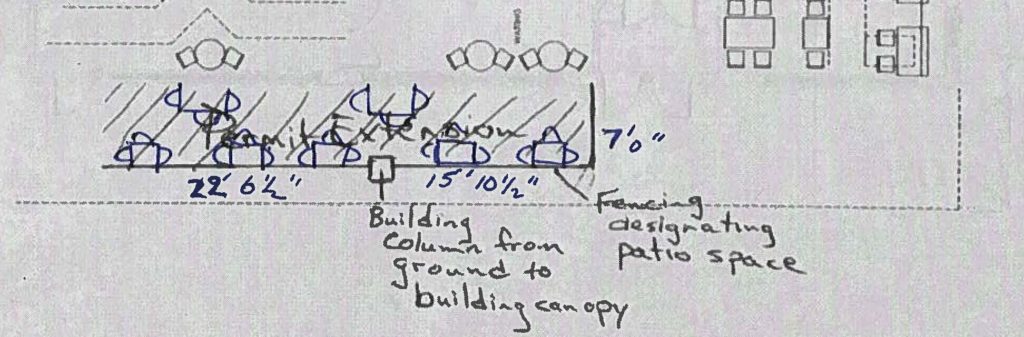 Permit Extension
7'0"
22' 6½"
15' 10½"
Building
column from
ground to
building canopy
Fencing
designating
patio space